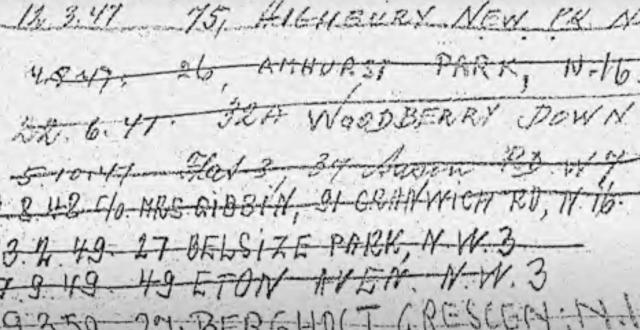 12.3.47 75, HIGHBURY NEW PK N
4.8.47. 26, AMHURST PARK, N.16
22.6.47. 32A WOODBERRY DOWN
5.10.47 Flat 3, 34 RD W
8 48 C/O MRS GIBBIN, 91 CRANWICH RD, N.16.
3.2.49. 27 BELSIZE PARK, N.W.3
7.9.49 49 ETON AVEN. N.W.3
9.3.50 27. BERGHOLT CRESCEN. N.